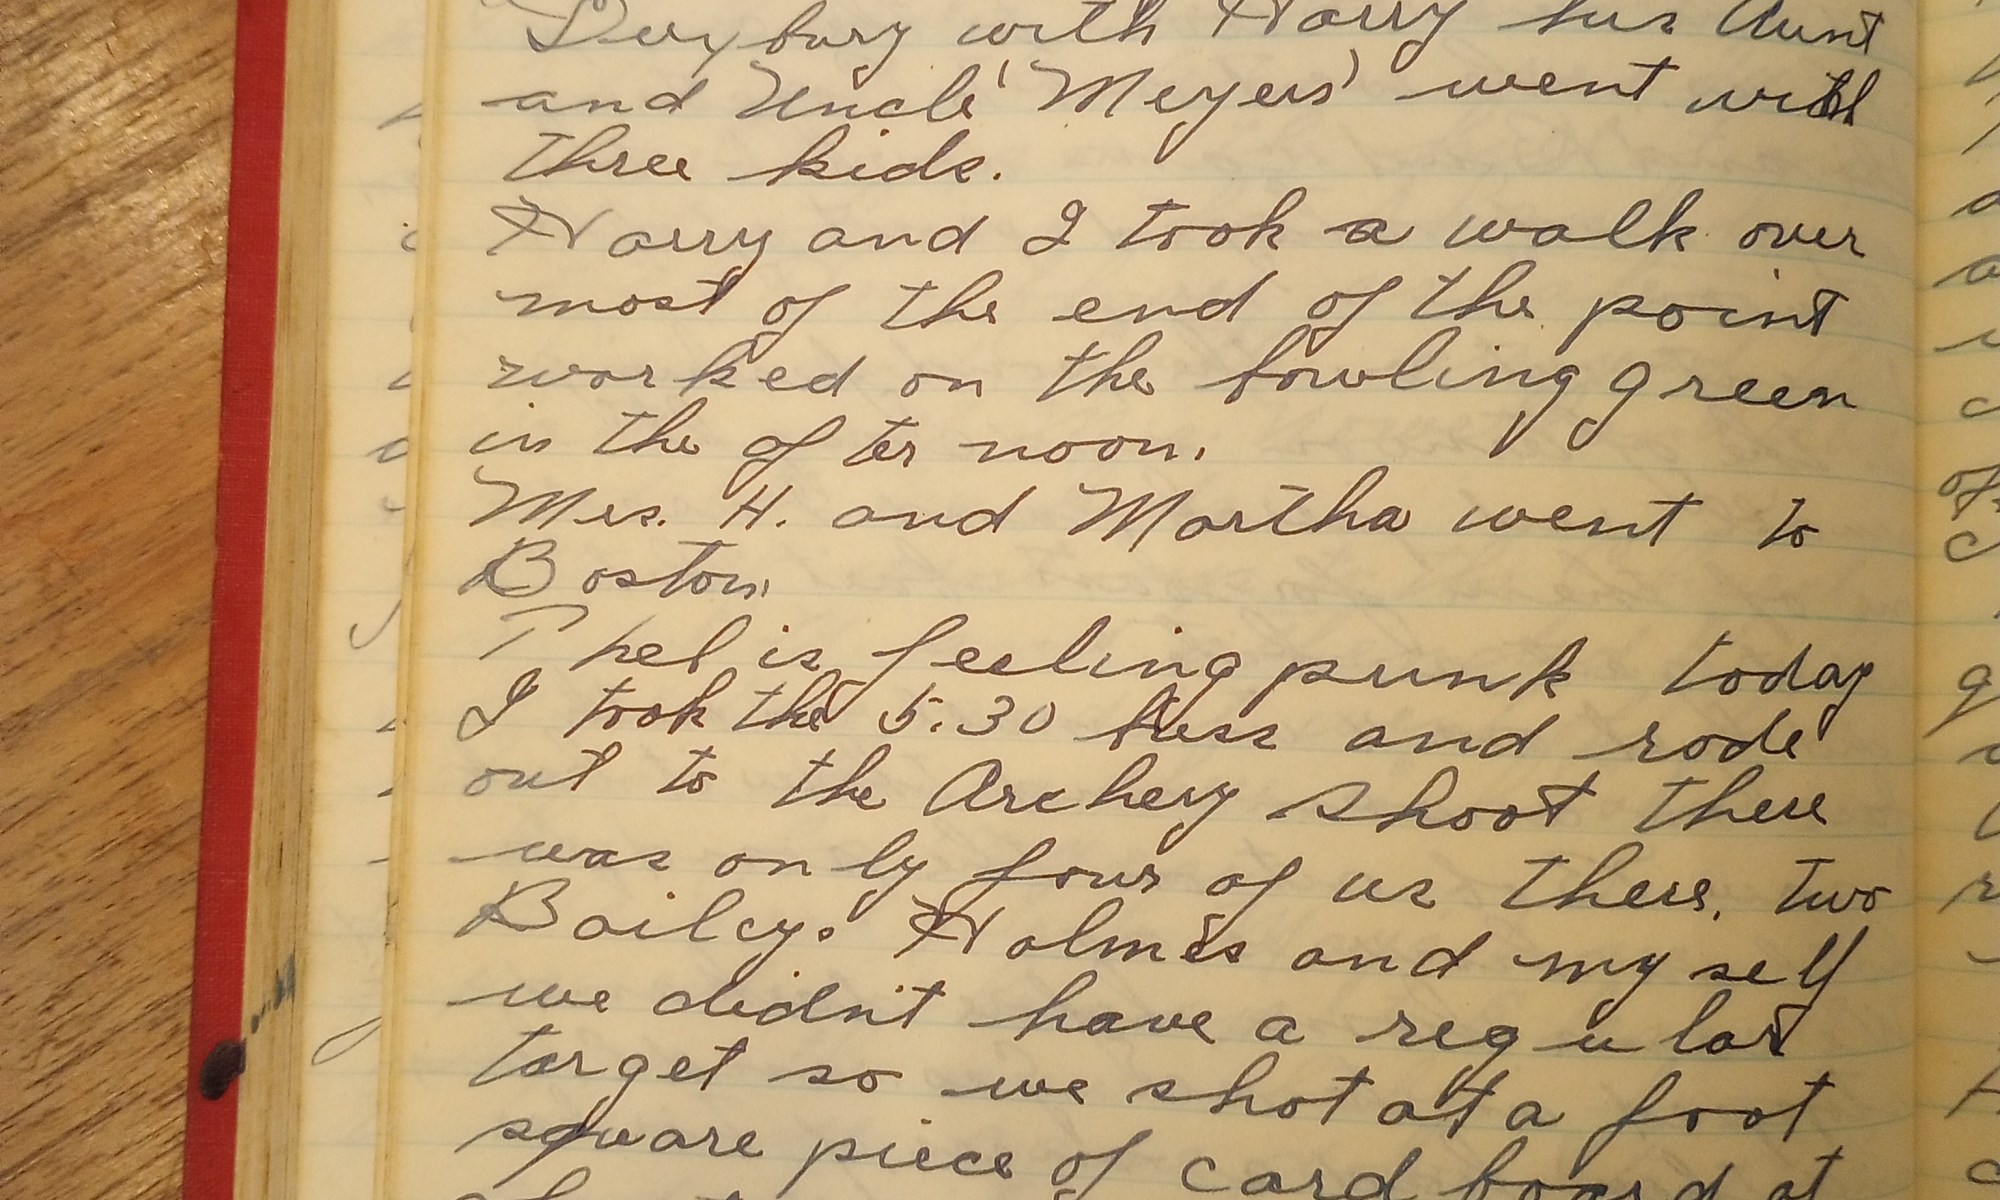 Duxbury with Harry his Aunt
and Uncle 'Meyers' went with
three kids.
Harry and I took a walk over
most of the end of the point
worked on the bowling green
in the of ter noon.
Mrs. H. and Martha went to
Boston.
Thel is feeling punk today
I took the 5:30 buss and rode
out to the Archery shoot there
was only four of us there, two
Baileys. Holmes and my self
we didn't have a regular
target so we shot at a foot
square piece of card board at